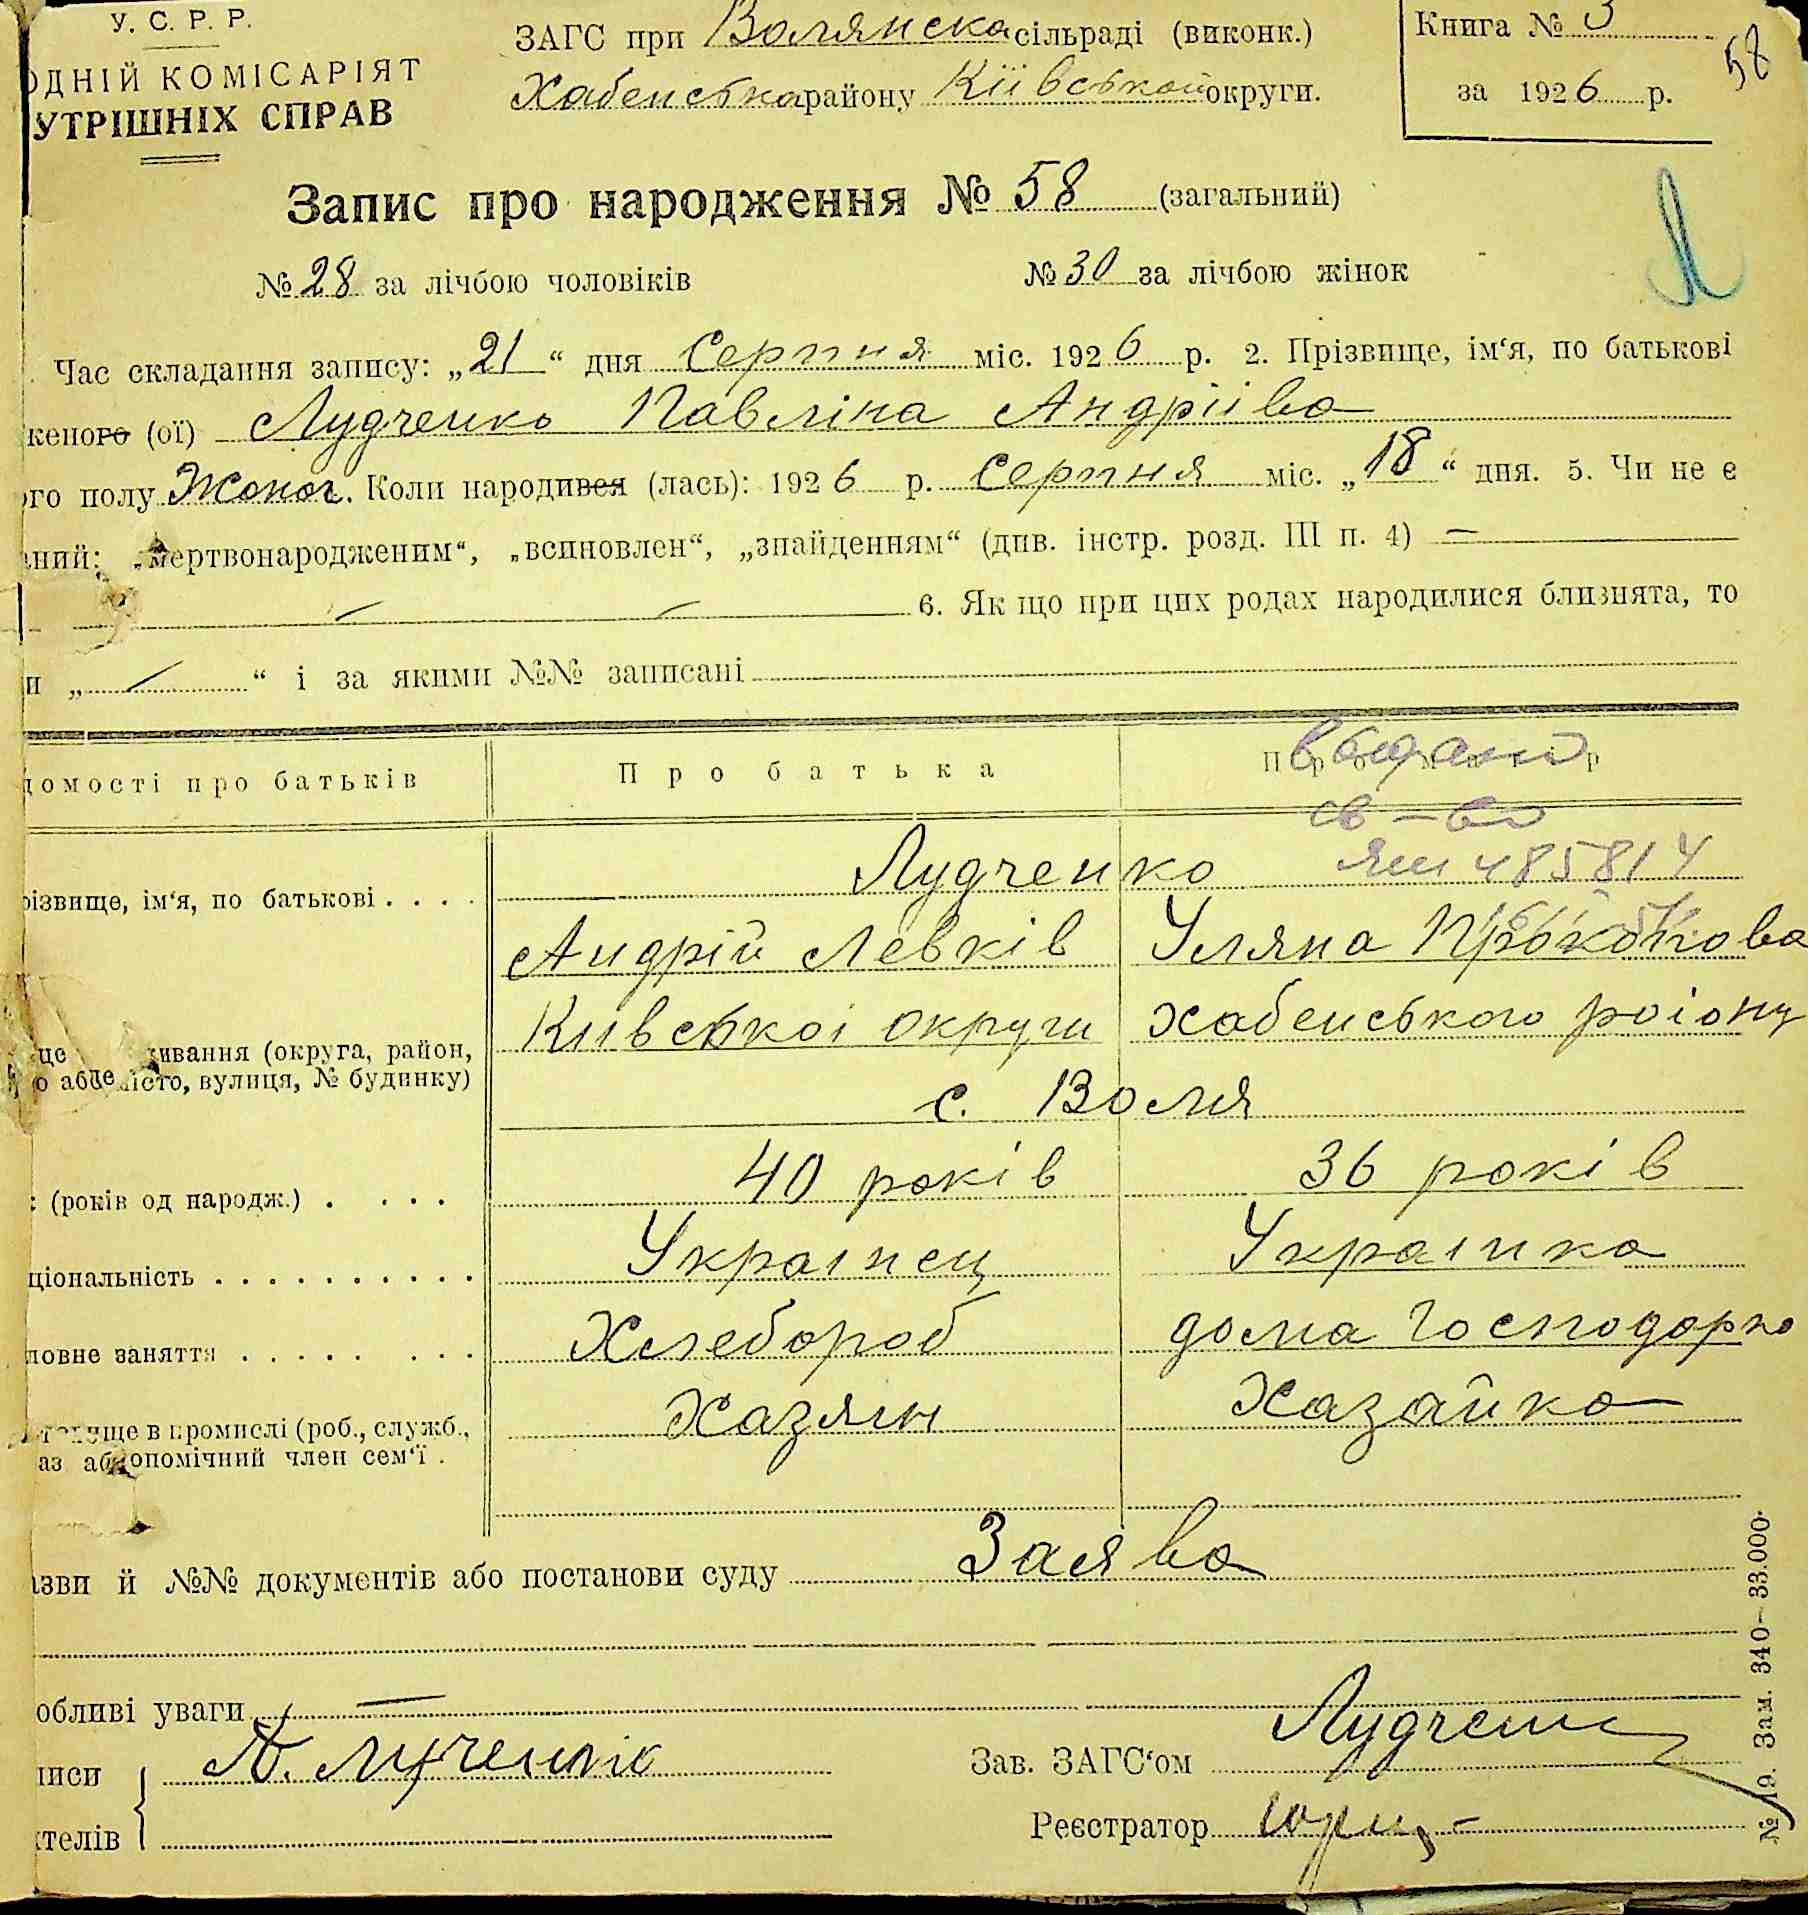 У. С. Р. Р.
ОДНІЙ КОМІСАРІЯТ
УТРІШНІХ СПРАВ
ЗАГС при Волянска сільраді (виконк.)
Хабенська району Київської округи.
Книга № 3
за 1926 р.
58
Запис про народження № 58 (загальний)
Л
№ 28 за лічбою чоловіків № 30 за лічбою жінок
Час складання запису: „21“ дня Серпня міс. 1926 р. 2. Прізвище, ім‘я, по батькові
женого (ої) Лудченко Павліна Андріівa
ого полу Жоноч. Коли народився (лась): 1926 р. Серпня міс. „18“ дня. 5. Чи не є
аний: „мертвонародженим“, „всиновлен“, „знайденням“ (див. інстр. розд. III п. 4) —
6. Як що при цих родах народилися близнята, то
и „ “ і за якими №№ записані
домості про батьків Про батька Про матір
видано
св-во
ЯШ 485814
різвище, ім‘я, по батькові . . . . Лудченко
Андрій Левків Уляна
це живання (округа, район, Київськоі округи Хабенського раіону
о або місто, вулиця, № будинку)
с. Воля
: (років од народж.) . . . . 40 років 36 років
ціональність . . . . . . . . . . . Украінец Украінка
ловне заняття . . . . . . . . Хлебороб дома Господарко
ще в промислі (роб., служб., Хазяін Хазайка
аз або помічний член сем‘ї .
азви й №№ документів або постанови суду Заява
обливі уваги —
писи А. Лученко Зав. ЗАГС‘ом Лудчен
ителів Реєстратор
№ 19. Зам. 340—33.000.